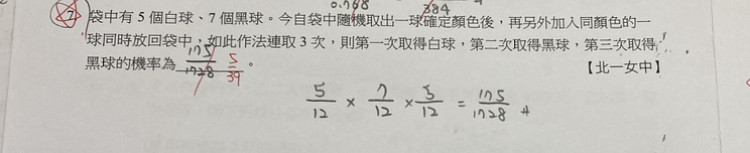 0.768
384
7 袋中有 5 個白球、7 個黑球。今自袋中隨機取出一球確定顏色後，再另外加入同顏色的一
球同時放回袋中，如此作法連取 3 次，則第一次取得白球，第二次取得黑球，第三次取得
黑球的機率為 175/1728 5/39 。 【北一女中】
5/12 × 7/12 × 5/12 = 175/1728 #